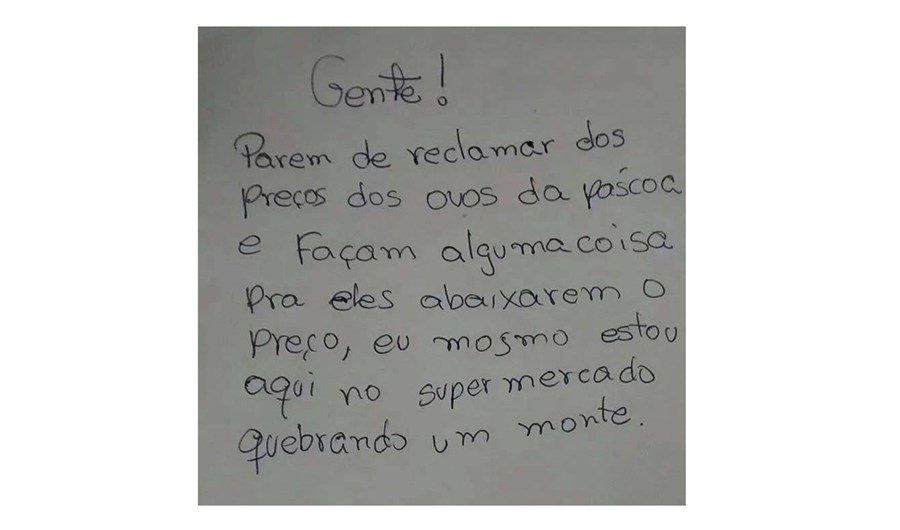 Gente!
Parem de reclamar dos
preços dos ovos da páscoa
e Façam alguma coisa
pra eles abaixarem o
preço, eu mosmo estou
aqui no supermercado
quebrando um monte.